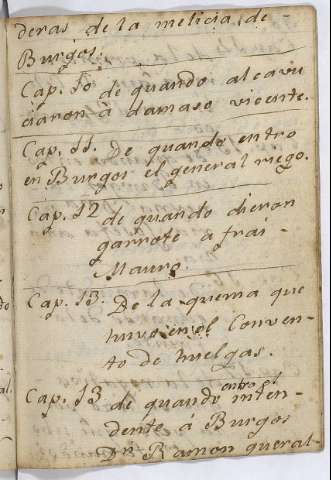 deras de la melicia de
Burgos.
Cap. 10 de quando alcavu
ciaron à damaso vicente.
Cap. 11. De quando entro
en Burgos el general riego.
Cap. 12 de quando dieron
garrote a frai
Mauro.
Cap. 13. De la quema que
huvo en el Conven-
to de huelgas.
Cap. 13 de quando entro el inten-
dente á Burgos
Dn Ramon queral-